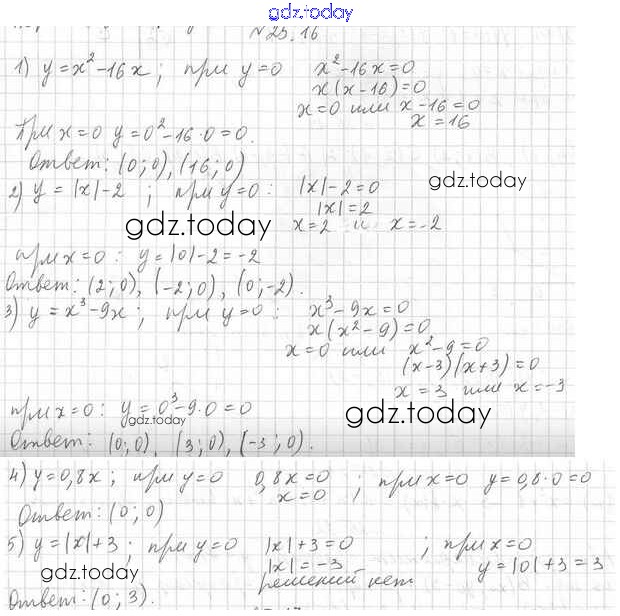 gdz.today
№25.16
1) y = x² - 16x ; при y = 0 x² - 16x = 0
x(x - 16) = 0
x = 0 или x - 16 = 0
x = 16
При x = 0 y = 0² - 16 · 0 = 0.
Ответ: (0; 0), (16; 0)
2) y = |x| - 2 ; при y = 0 : |x| - 2 = 0
gdz.today
|x| = 2
gdz.today
x = 2 и x = -2
при x = 0 : y = |0| - 2 = -2
Ответ: (2; 0), (-2; 0), (0; -2).
3) y = x³ - 9x ; при y = 0 : x³ - 9x = 0
x(x² - 9) = 0
x = 0 или x² - 9 = 0
(x - 3)(x + 3) = 0
x = 3 или x = -3
при x = 0 : y = 0³ - 9 · 0 = 0
gdz.today
gdz.today
Ответ: (0; 0), (3; 0), (-3; 0).
4) y = 0,8x ; при y = 0 0,8x = 0 ; при x = 0 y = 0,8 · 0 = 0
x = 0
Ответ: (0; 0)
5) y = |x| + 3 ; при y = 0 |x| + 3 = 0 ; при x = 0
|x| = -3 y = |0| + 3 = 3
gdz.today
решений нет
Ответ: (0; 3).